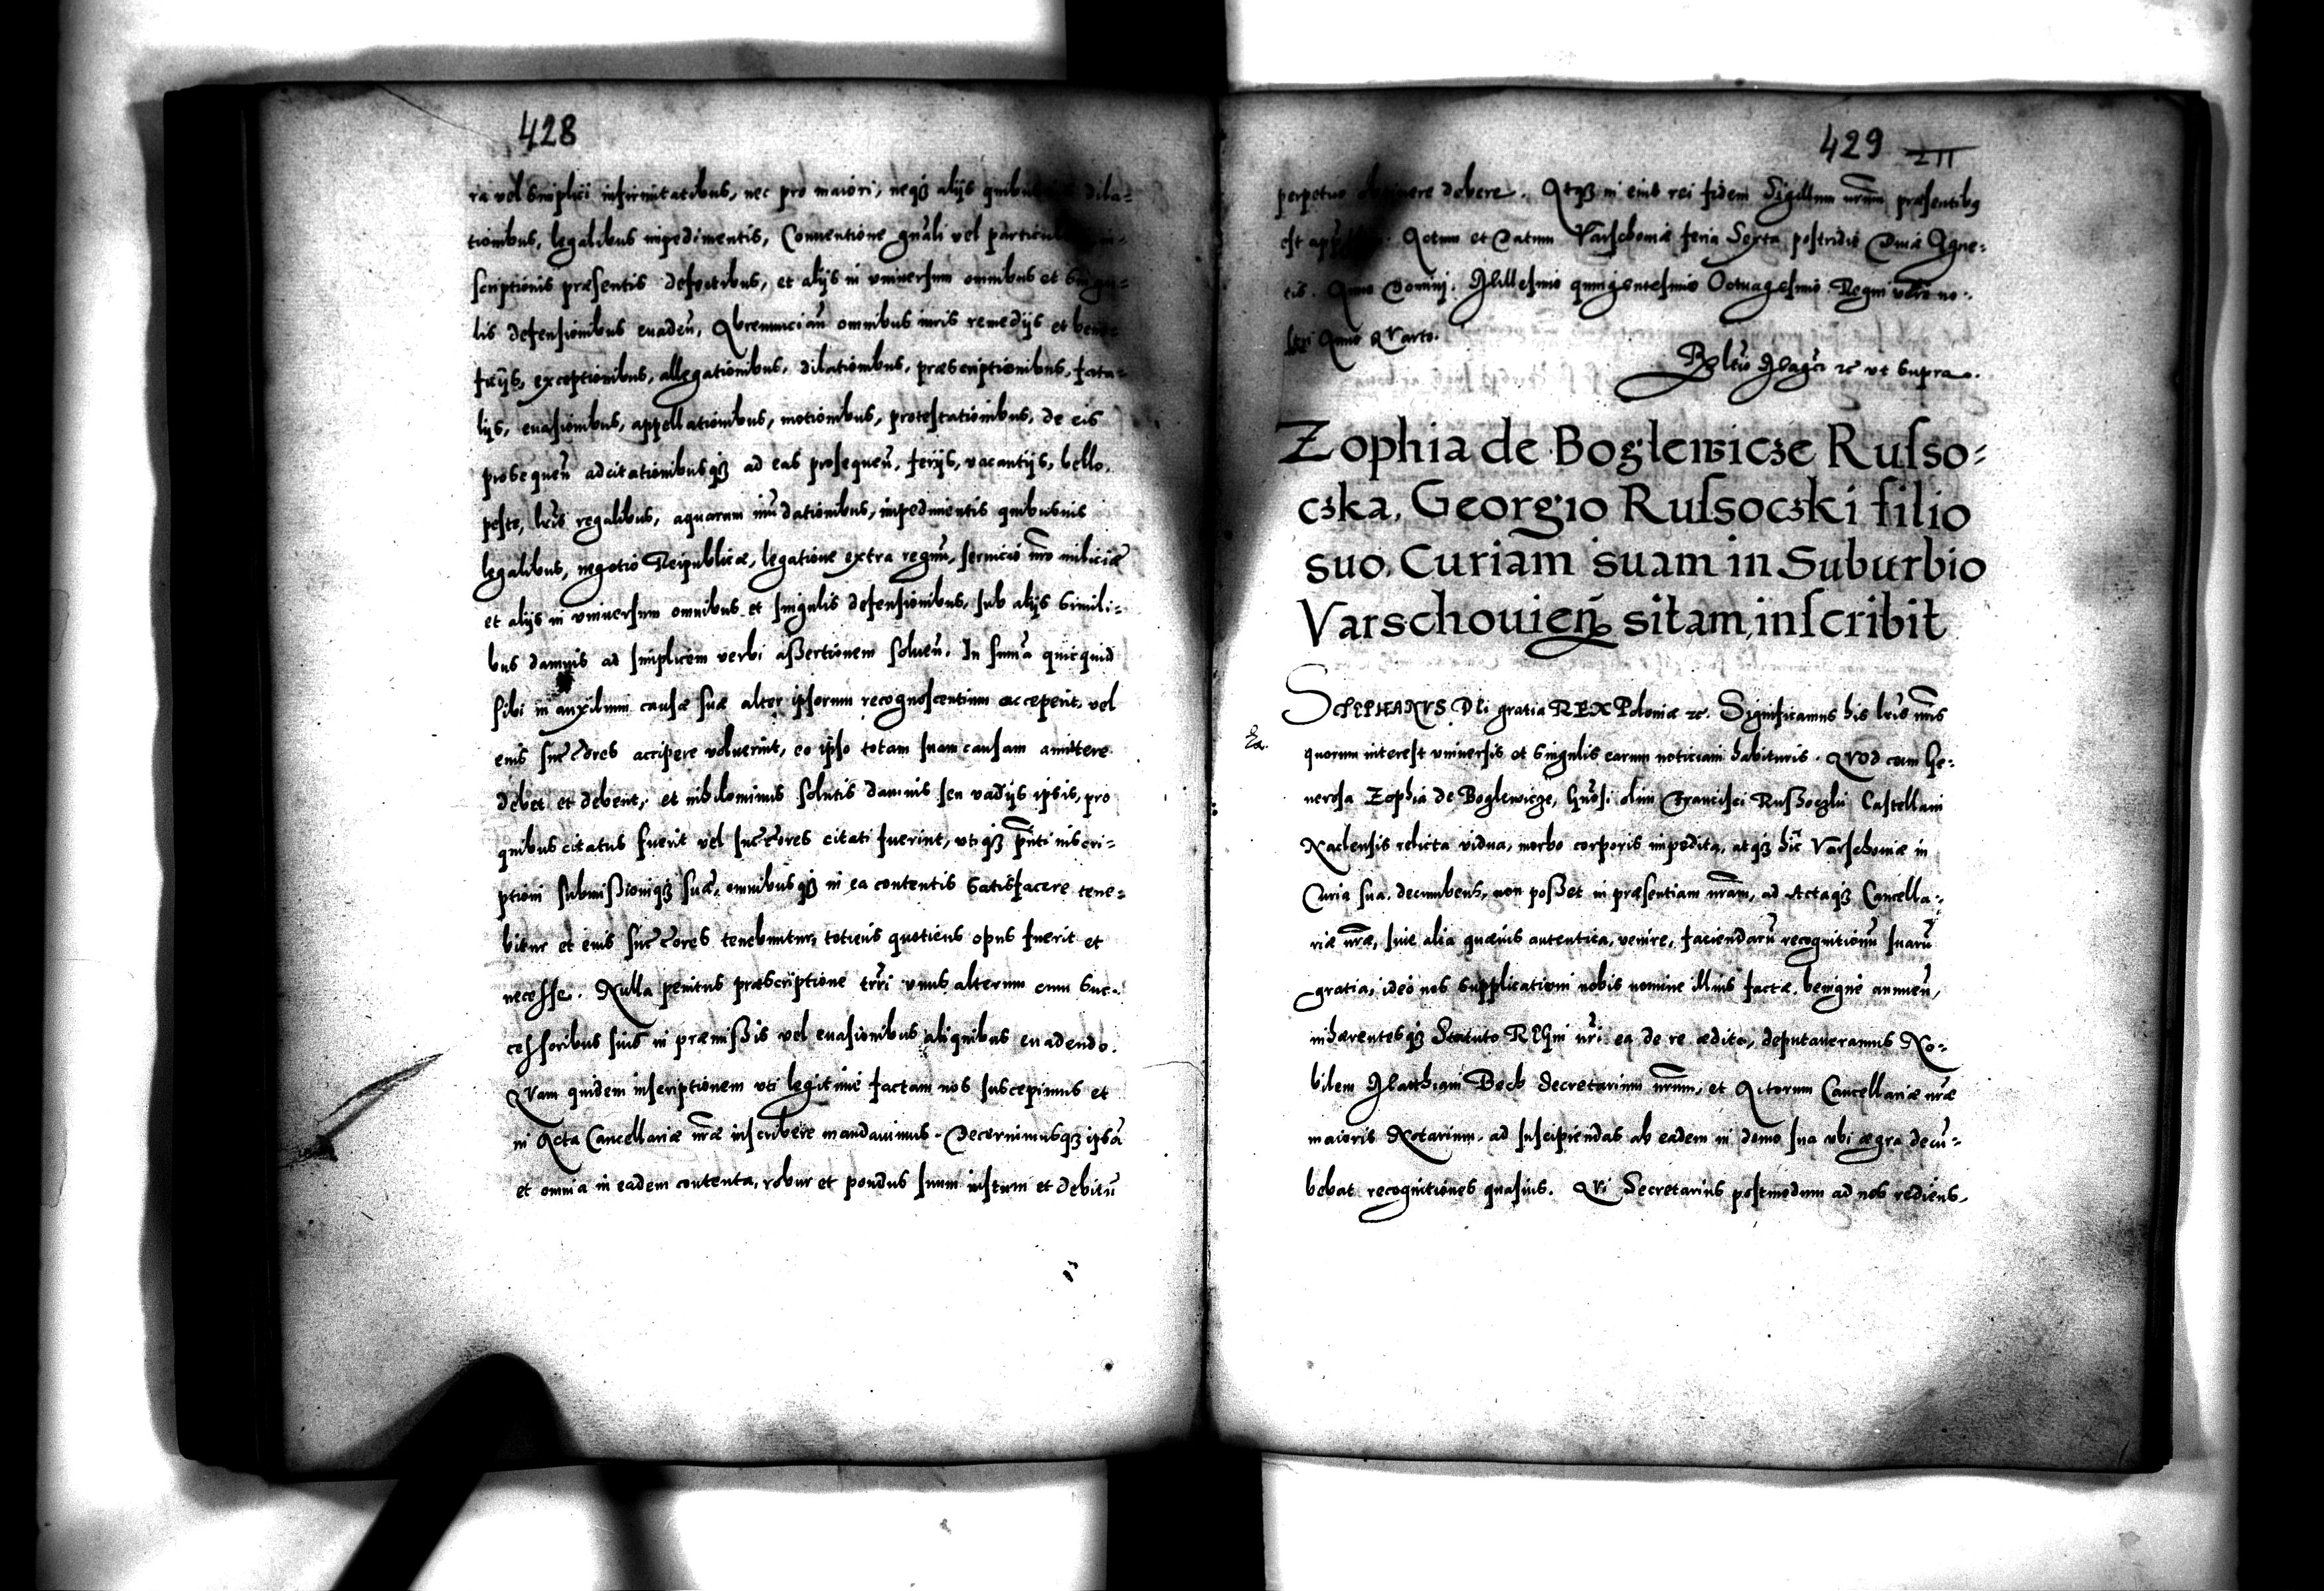 428
ra vel simplici infirmitatibus, nec pro maiori, neqꝫ alijs dila-
tionibus, legalibus impedimentis, Conuentione gnãli vel in-
scriptionis præsentis defectibus, et alijs in vniuersum omnibus et singu-
lis defensionibus euadeñ, Abrenunciañ omnibus iuris remedijs et bene-
ficijs, exceptionibus, allegationibus, dilationibus, præscriptionibus, fata-
lijs, euasionibus, appellationibus, motionibus, protestationibus, de eis
prosequeñ adcitationibusqꝫ ad eas prosequeñ, ferijs, vacantijs, bello,
peste, lr̃is regalibus, aquarum inũdationibus, impedimentis quibusuis
legalibus, negotio Reipublicæ, legatione extra regnũ, seruicio nr̃o miliciæ
et alijs in vniuersum omnibus et singulis defensionibus, sub alijs simili-
bus damnis ad simplicem verbi aßertionem solueñ. In sum̃a quicquid
sibi in auxilium causæ suæ alter ipsorum recognoscentium acceperit, vel
eius succ̃ores accipere voluerint, eo ipso totam suam causam amittere
debet et debent, et nihilominus solutis damnis seu vadijs ipsis, pro
quibus citatus fuerit vel succ̃ores citati fuerint, vtiqꝫ pñti inscri-
ptioni submißioniqꝫ suæ, omnibusqꝫ in ea contentis satisfacere tene-
bitur et eius succ̃ores tenebuntur, totiens quotiens opus fuerit et
necesse. Nulla penitus præscriptione terr̃i vnus alterum cum suc-
cessoribus suis in præmißis vel euasionibus aliquibus euadendo.
QVam quidem inscriptionem vti legitimè factam nos suscepimus et
in Acta Cancellariæ nr̃æ inscribere mandauimus. Decernimusqꝫ ipsã
et omnia in eadem contenta, robur et pondus suum iustum et debitũ
429 211
perpetuo obtinere debere. Atqꝫ in eius rei fidem Sigillum nr̃um præsentibꝯ
est Actum et Datum Varschouiæ feria Sexta postridie Diuæ Agne-
tis. Anno Domini. Millesimo quingentesimo Octuagesimo. Regni vero no-
stri Anno QVarto.
vt supra.
Zophia de Boglewicze Russo-
czka, Georgio Russoczki filio
suo, Curiam suam in Suburbio
Varschouieñ sitam, inscribit
STEPHANVS DEi gratia REX Poloniæ ꝛc. Significamus his lr̃is nr̃is
quorum interest vniuersis et singulis earum noticiam habituris. QVOD cum Ge-
nerosa Zophia de Boglewicze, Gñosi olim Francisci Rußoczki Castellani
Naclensis relicta vidua, morbo corporis impedita, atqꝫ hic Varschouiæ in
Curia sua decumbens, non poßet in præsentiam nr̃am, ad Actaqꝫ Cancella-
riæ nr̃æ, siue alia quæuis autentica, venire, faciendarũ recognitionũ suarũ
gratia, ideo nos supplicationi nobis nomine illius factæ benignè annueñ,
inhærentesqꝫ Statuto REGni nr̃i ea de re ædito, deputaueramus No-
bilem Matthiam Bock Secretarium nr̃um, et Actorum Cancellariæ nr̃æ
maioris Notarium, ad suscipiendas ab eadem in domo sua vbi ægra decu-
bebat recognitiones quasuis. QVi Secretarius postmodum ad nos rediens